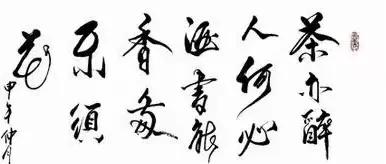 茶亦醉
人何必
酒書能
香我
不須
花
甲午仲月